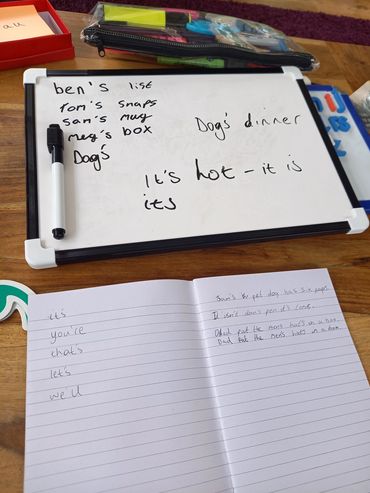 au
ben's list
Tom's snaps
sam's mug
meg's box
Dog's
Dog's dinner
It's hot - it is
its
it's
you're
that's
let's
we ll
Sam's the pet dog has six pups.
It isn't pen it's
put the men's hats in a
Dad the men's hats in a